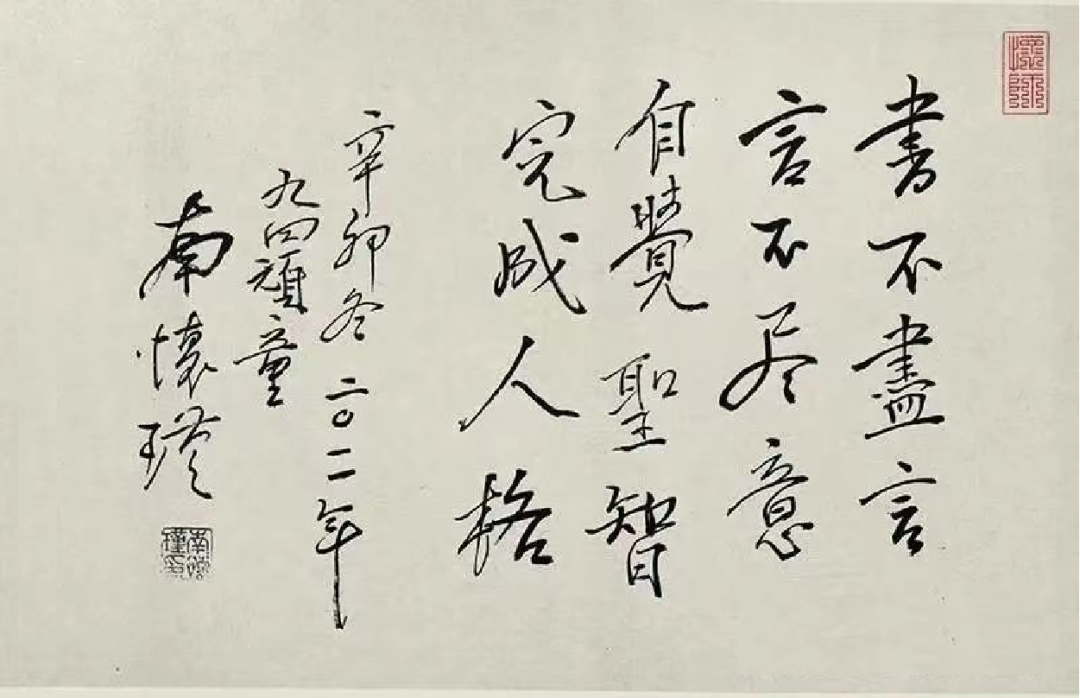 書不盡言
言不尽意
自覺聖智
完成人格
辛卯冬 二〇一一年
九四頑童
南懷瑾